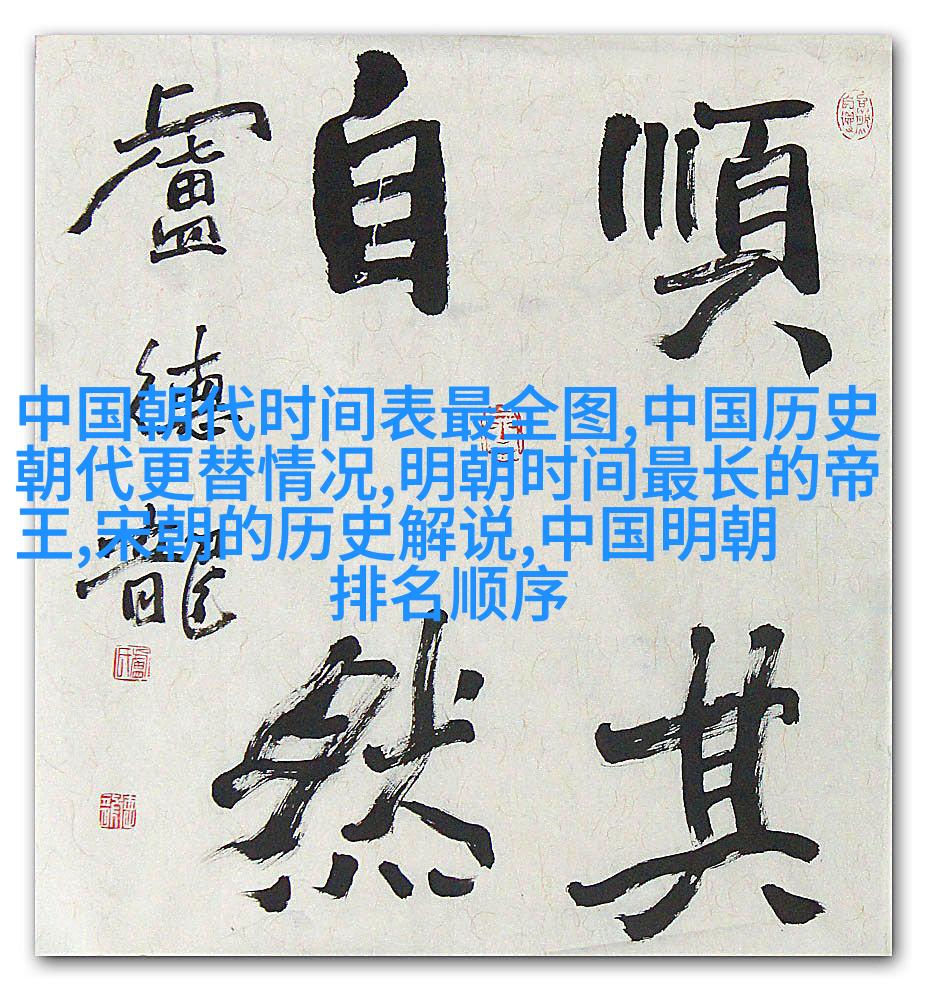 順其
自然
盧德龍
中国朝代时间表最全图,中国历史
朝代更替情况,明朝时间最长的帝
王,宋朝的历史解说,中国明朝
排名顺序